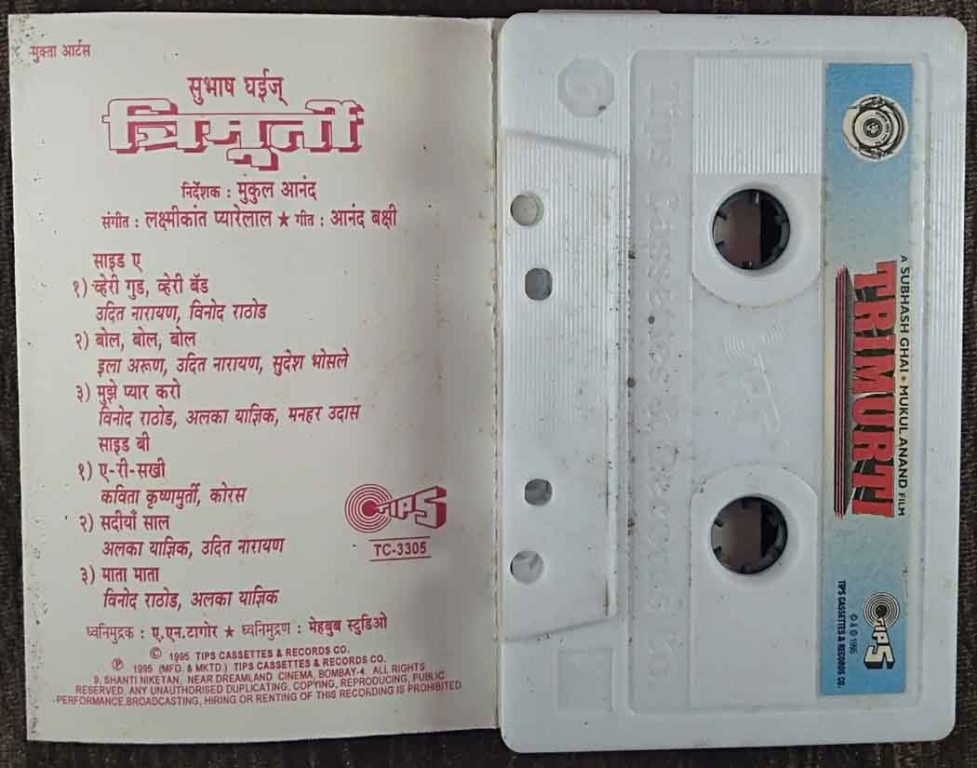 मुक्ता आर्टस
सुभाष घईज्
त्रिमूर्ती
निर्देशक : मुकुल आनंद
संगीत : लक्ष्मीकांत प्यारेलाल ★ गीत : आनंद बक्षी
साइड ए
१) व्हेरी गुड, व्हेरी बॅड
उदित नारायण, विनोद राठोड
२) बोल, बोल, बोल
इला अरूण, उदित नारायण, सुदेश भोसले
३) मुझे प्यार करो
विनोद राठोड, अलका याज्ञिक, मनहर उदास
साइड बी
१) ए-री-सखी
कविता कृष्णमुर्ती, कोरस
२) सदीयाँ साल
अलका याज्ञिक, उदित नारायण
३) माता माता
विनोद राठोड, अलका याज्ञिक
TIPS
TC-3305
ध्वनिमुद्रक : ए.एन.टागोर ★ ध्वनिमुद्रण : मेहबुब स्टुडिओ
© 1995 TIPS CASSETTES & RECORDS CO.
℗ 1995 (MFD. & MKTD.) TIPS CASSETTES & RECORDS CO.
9, SHANTI NIKETAN, NEAR DREAMLAND CINEMA, BOMBAY-4. ALL RIGHTS
RESERVED. ANY UNAUTHORISED DUPLICATING, COPYING, REPRODUCING, PUBLIC
PERFORMANCE, BROADCASTING, HIRING OR RENTING OF THIS RECORDING IS PROHIBITED
A SUBHASH GHAI • MUKUL ANAND FILM
TRIMURTI
TIPS
℗ & © 1995
TIPS CASSETTES & RECORDS CO.